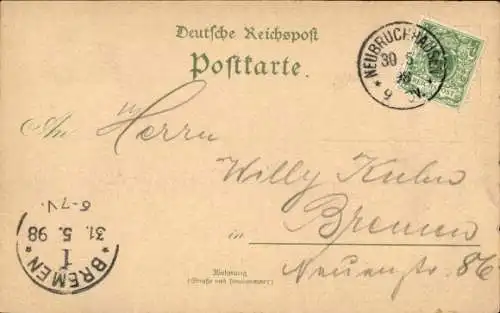 Deutsche Reichspost
Postkarte.
NEUBRUCHHAUSEN
30 5
98
9
An Herrn
Willy Kuhn
in Bremen
Neuenstr. 86
Wohnung
(Straße und Hausnummer)
* BREMEN *
1
31. 5. 98
6-7V.